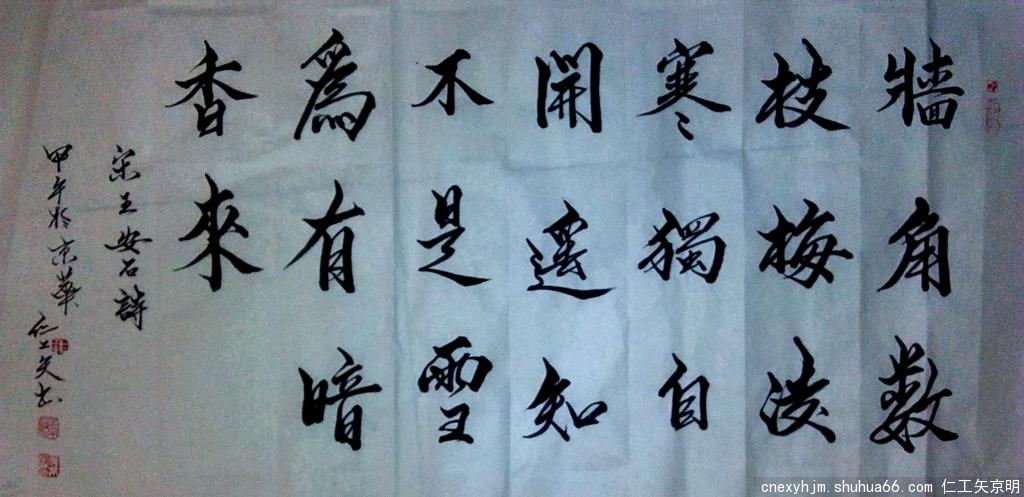 牆角数
枝梅凌
寒獨自
開遥知
不是雪
爲有暗
香來
宋王安石詩
甲午於京華
仁工矢书
cnexyhjm.shuhua66.com 仁工矢京明